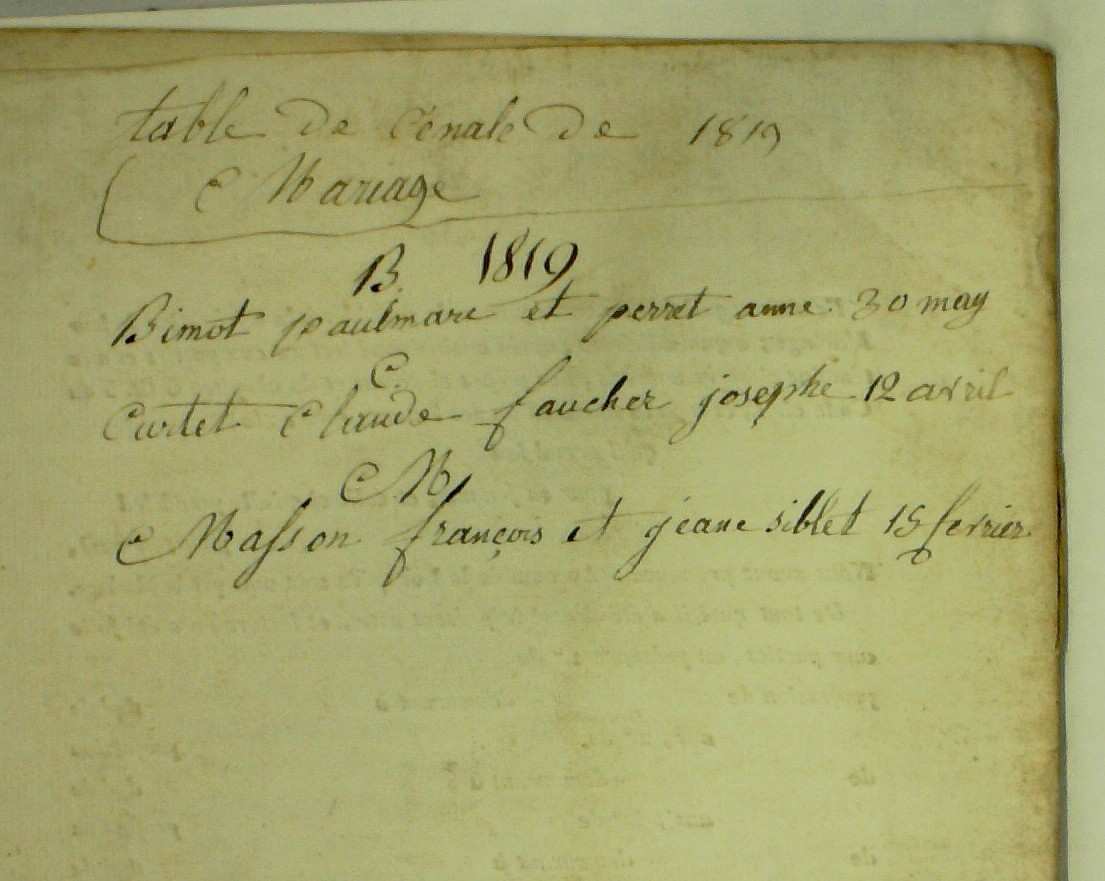 table de cenale de 1819
Mariage
B. 1819
Bimot paulmarc et perret anne 30 may
C.
Curtet Claude faucher josephe 12 avril
M
Masson françois et jeane siblet 15 fevrier